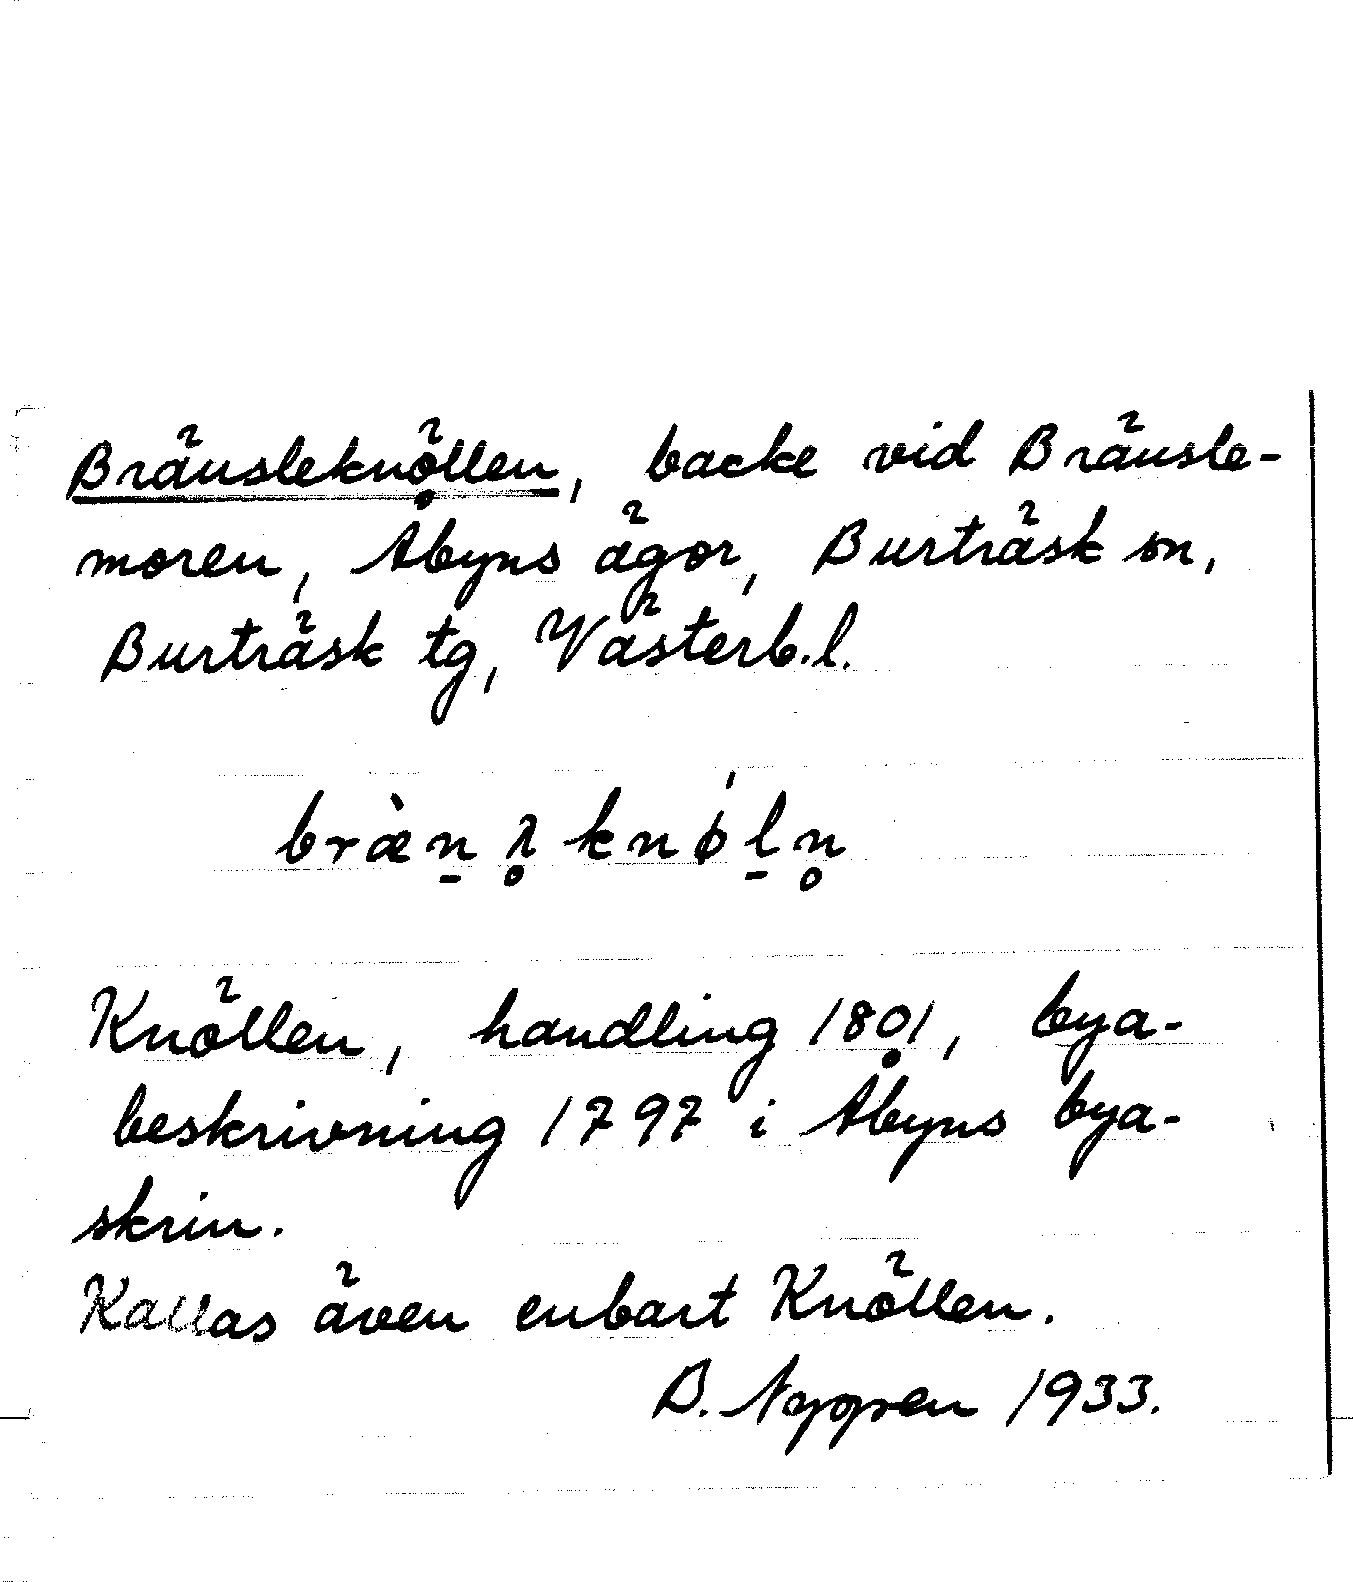 Bränsleknöllen, backe vid Bränsle-
moren, Åbyns ägor, Burträsk sn,
Burträsk tg, Västerb.l.
Knöllen, handling 1801, bya-
beskrivning 1797 i Åbyns bya-
skrin.
Kallas även enbart Knöllen.
B. Nygren 1933.